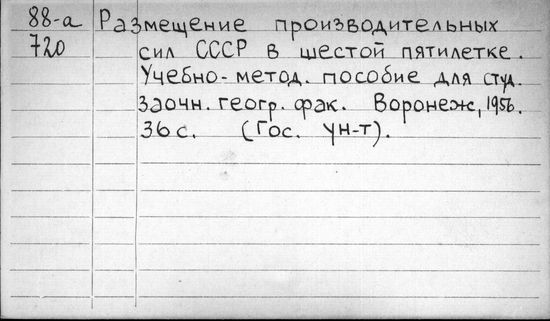 88-а Размещение производительных
720 сил СССР в шестой пятилетке.
Учебно-метод. пособие для студ.
заочн. геогр. фак. Воронеж, 1956.
36 с. (Гос. ун-т).